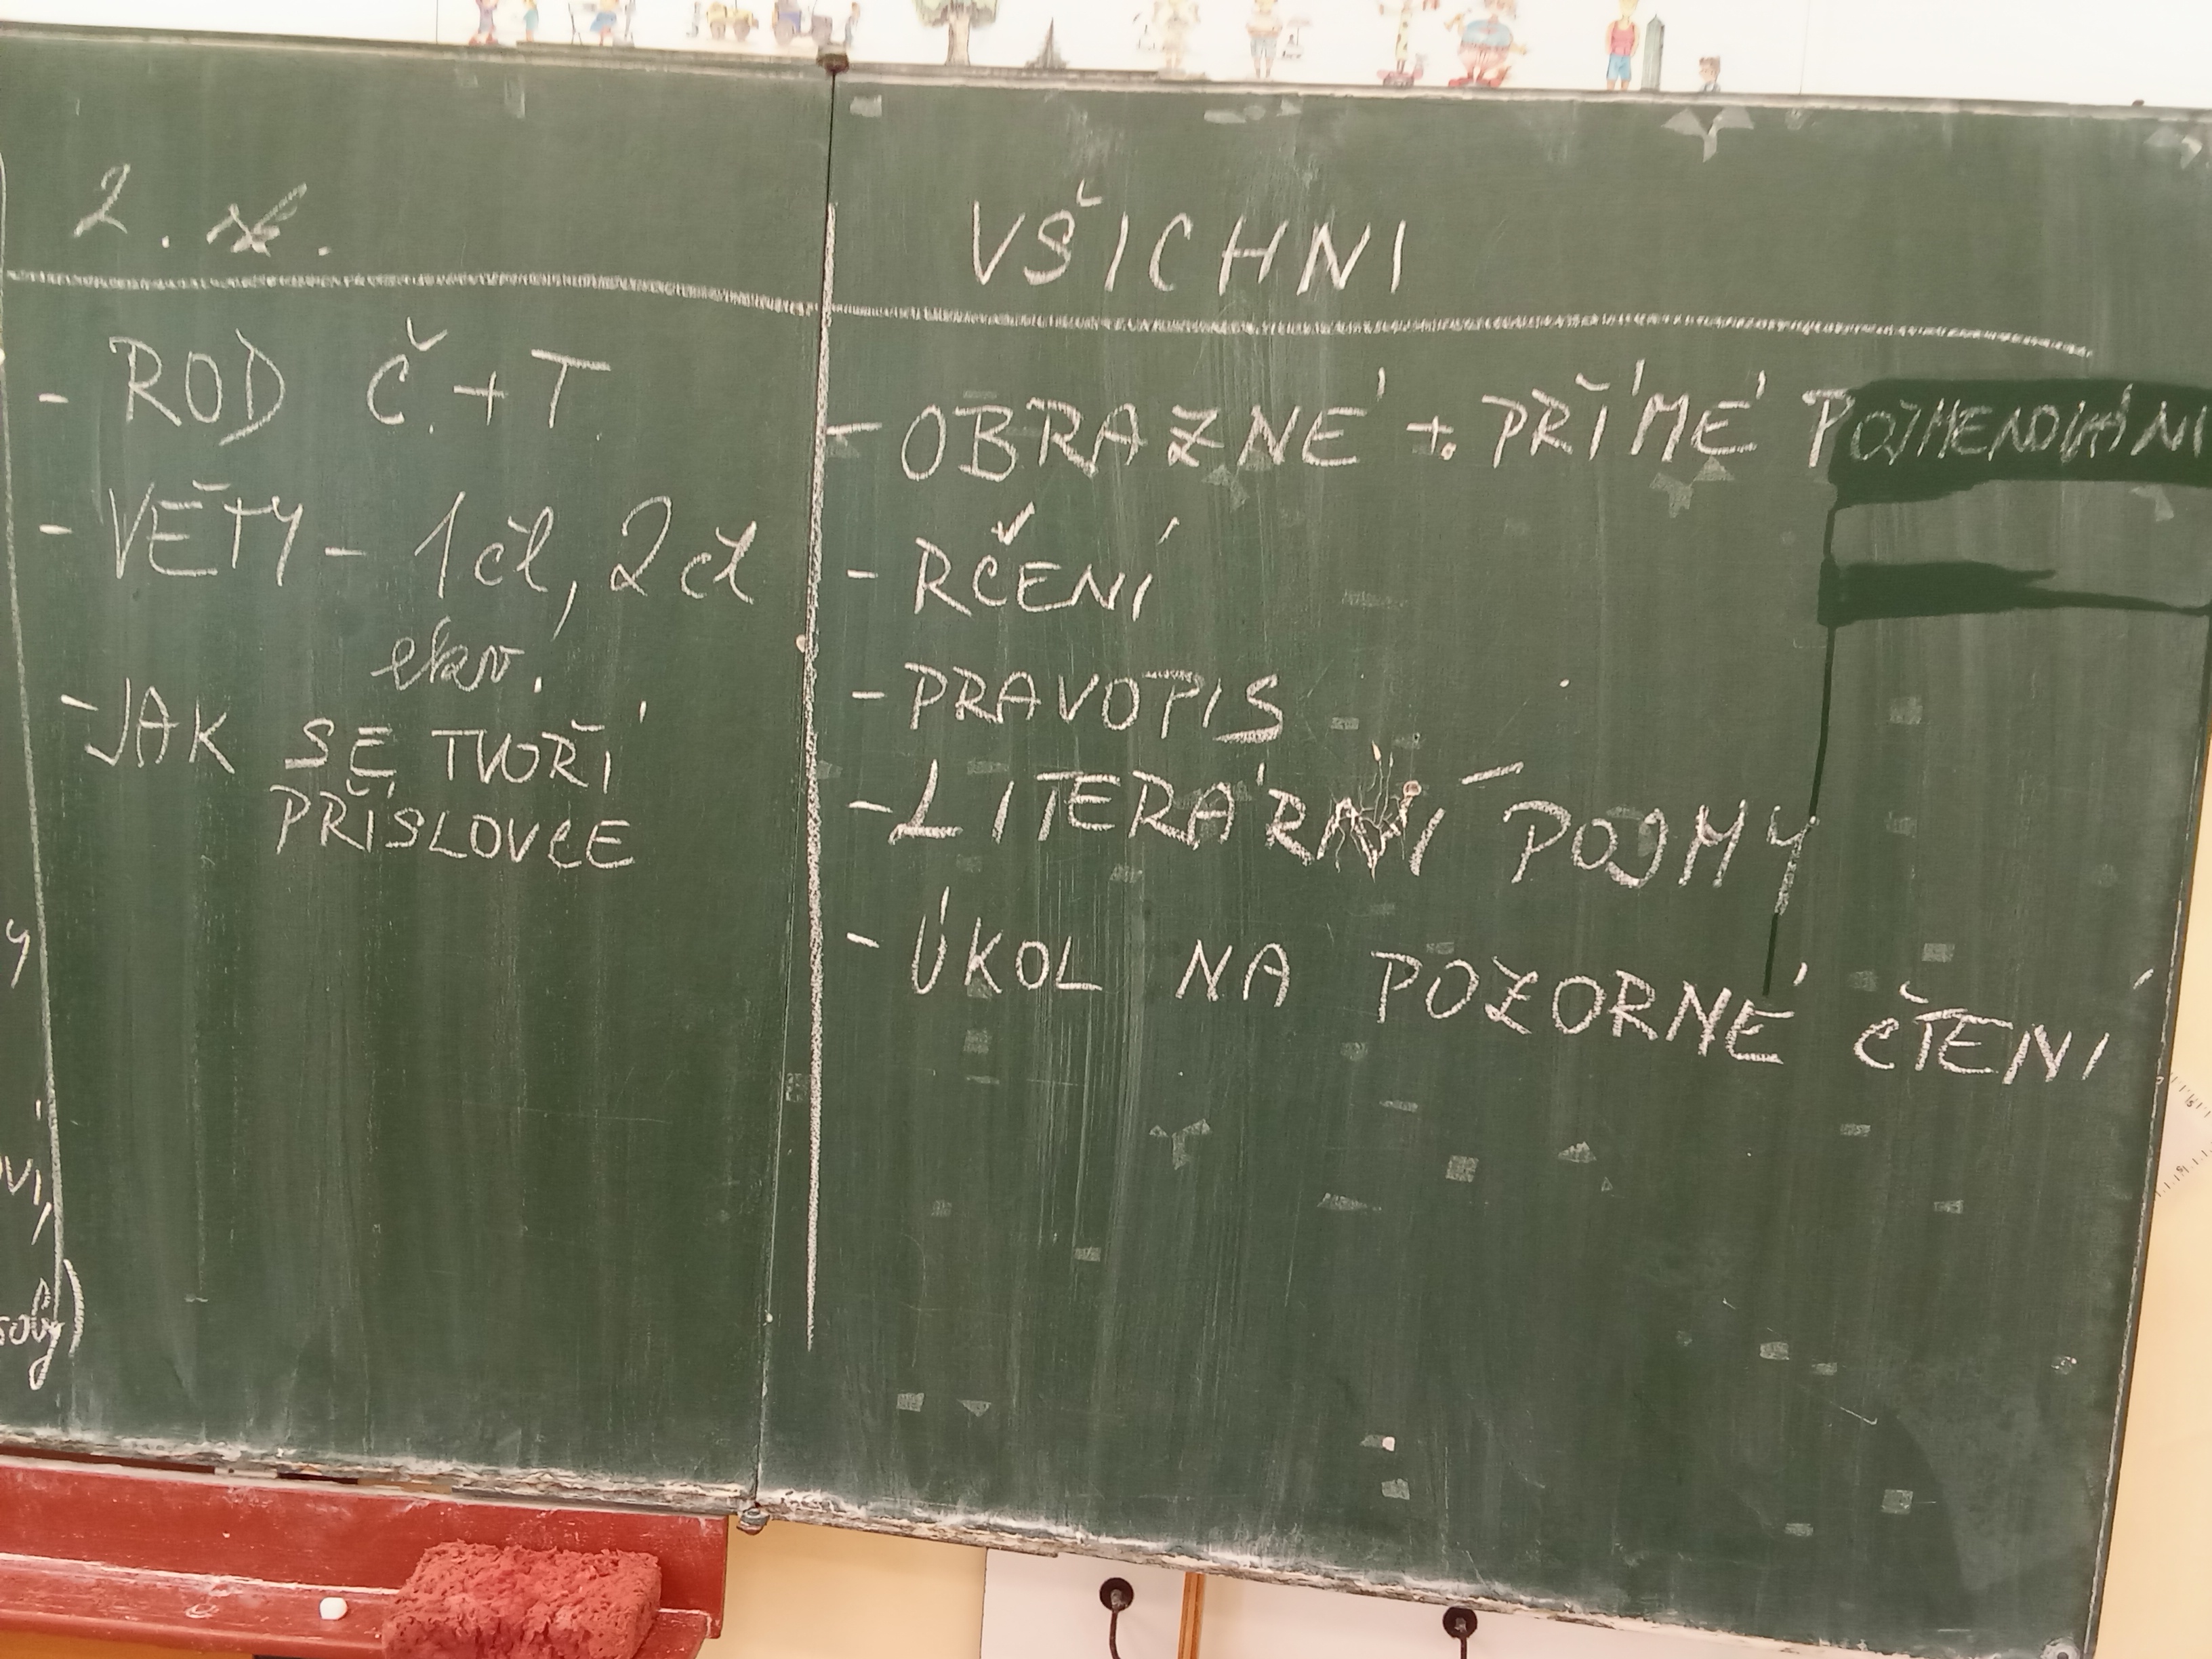 2. sk.
- ROD Č. + T.
- VĚTY - 1čl, 2čl
ekv.
- JAK SE TVOŘÍ
PŘÍSLOVCE
VŠICHNI
- OBRAZNÉ + PŘÍMÉ POJMENOVÁNÍ
- RČENÍ
- PRAVOPIS
- LITERÁRNÍ POJMY
- ÚKOL NA POZORNÉ ČTENÍ